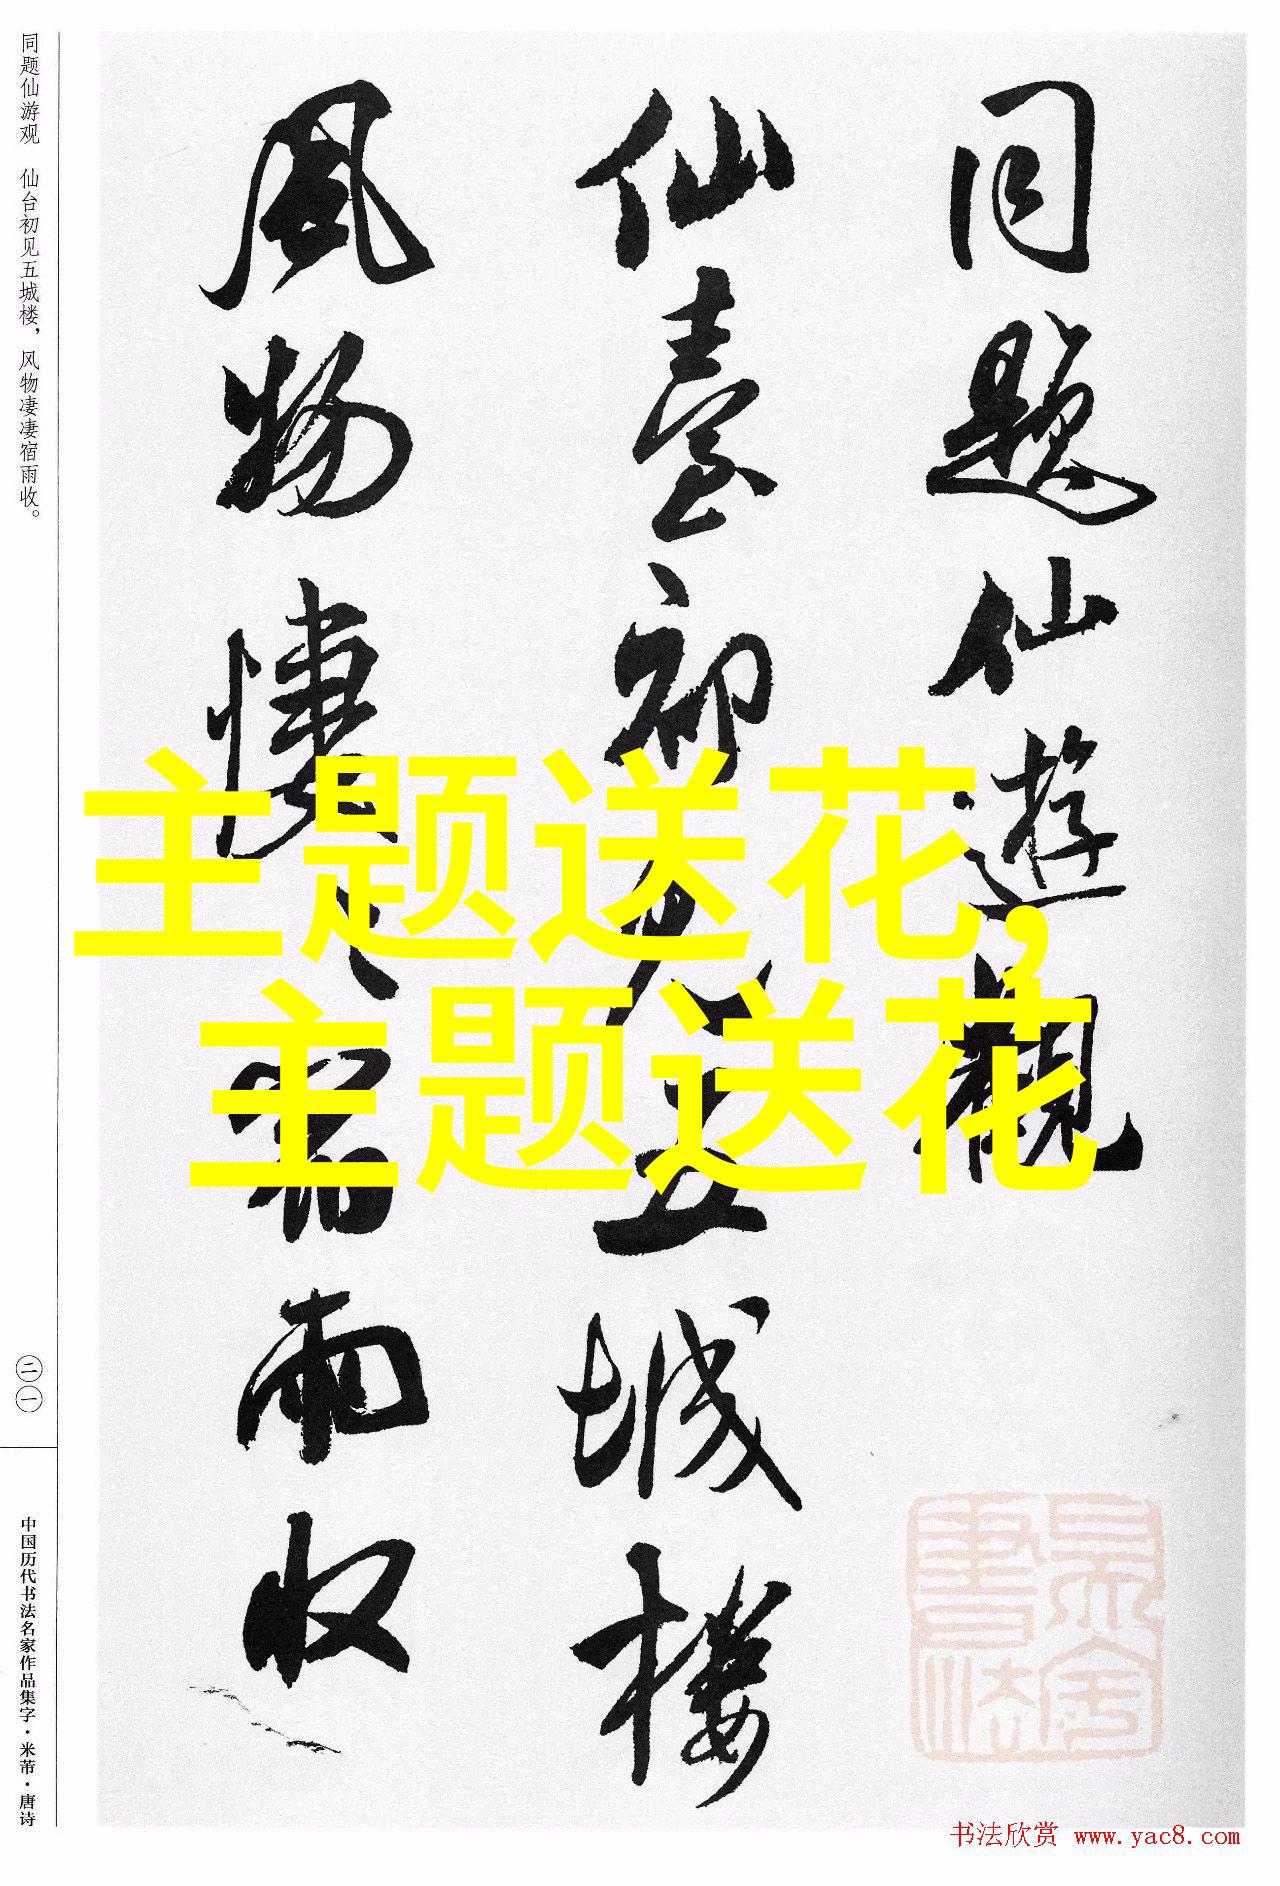 同题仙游观 仙台初见五城楼，风物凄凄宿雨收。
同题仙遊觀
仙臺初见五城楼
风物悽〻宿雨收
主题送花，
主题送花
二一
中国历代书法名家作品集字·米芾·唐诗
书法欣赏 www.yac8.com